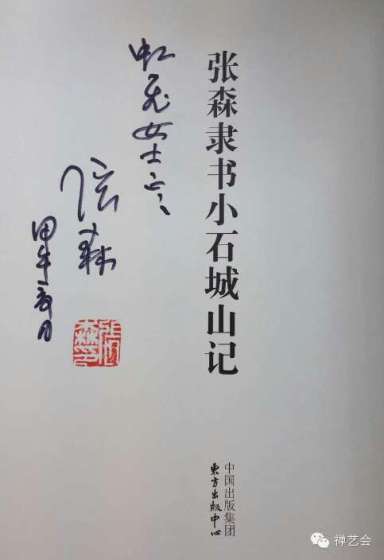 张森隶书小石城山记
女士正
张森
甲午
月
中国出版集团
东方出版中心
禅艺会